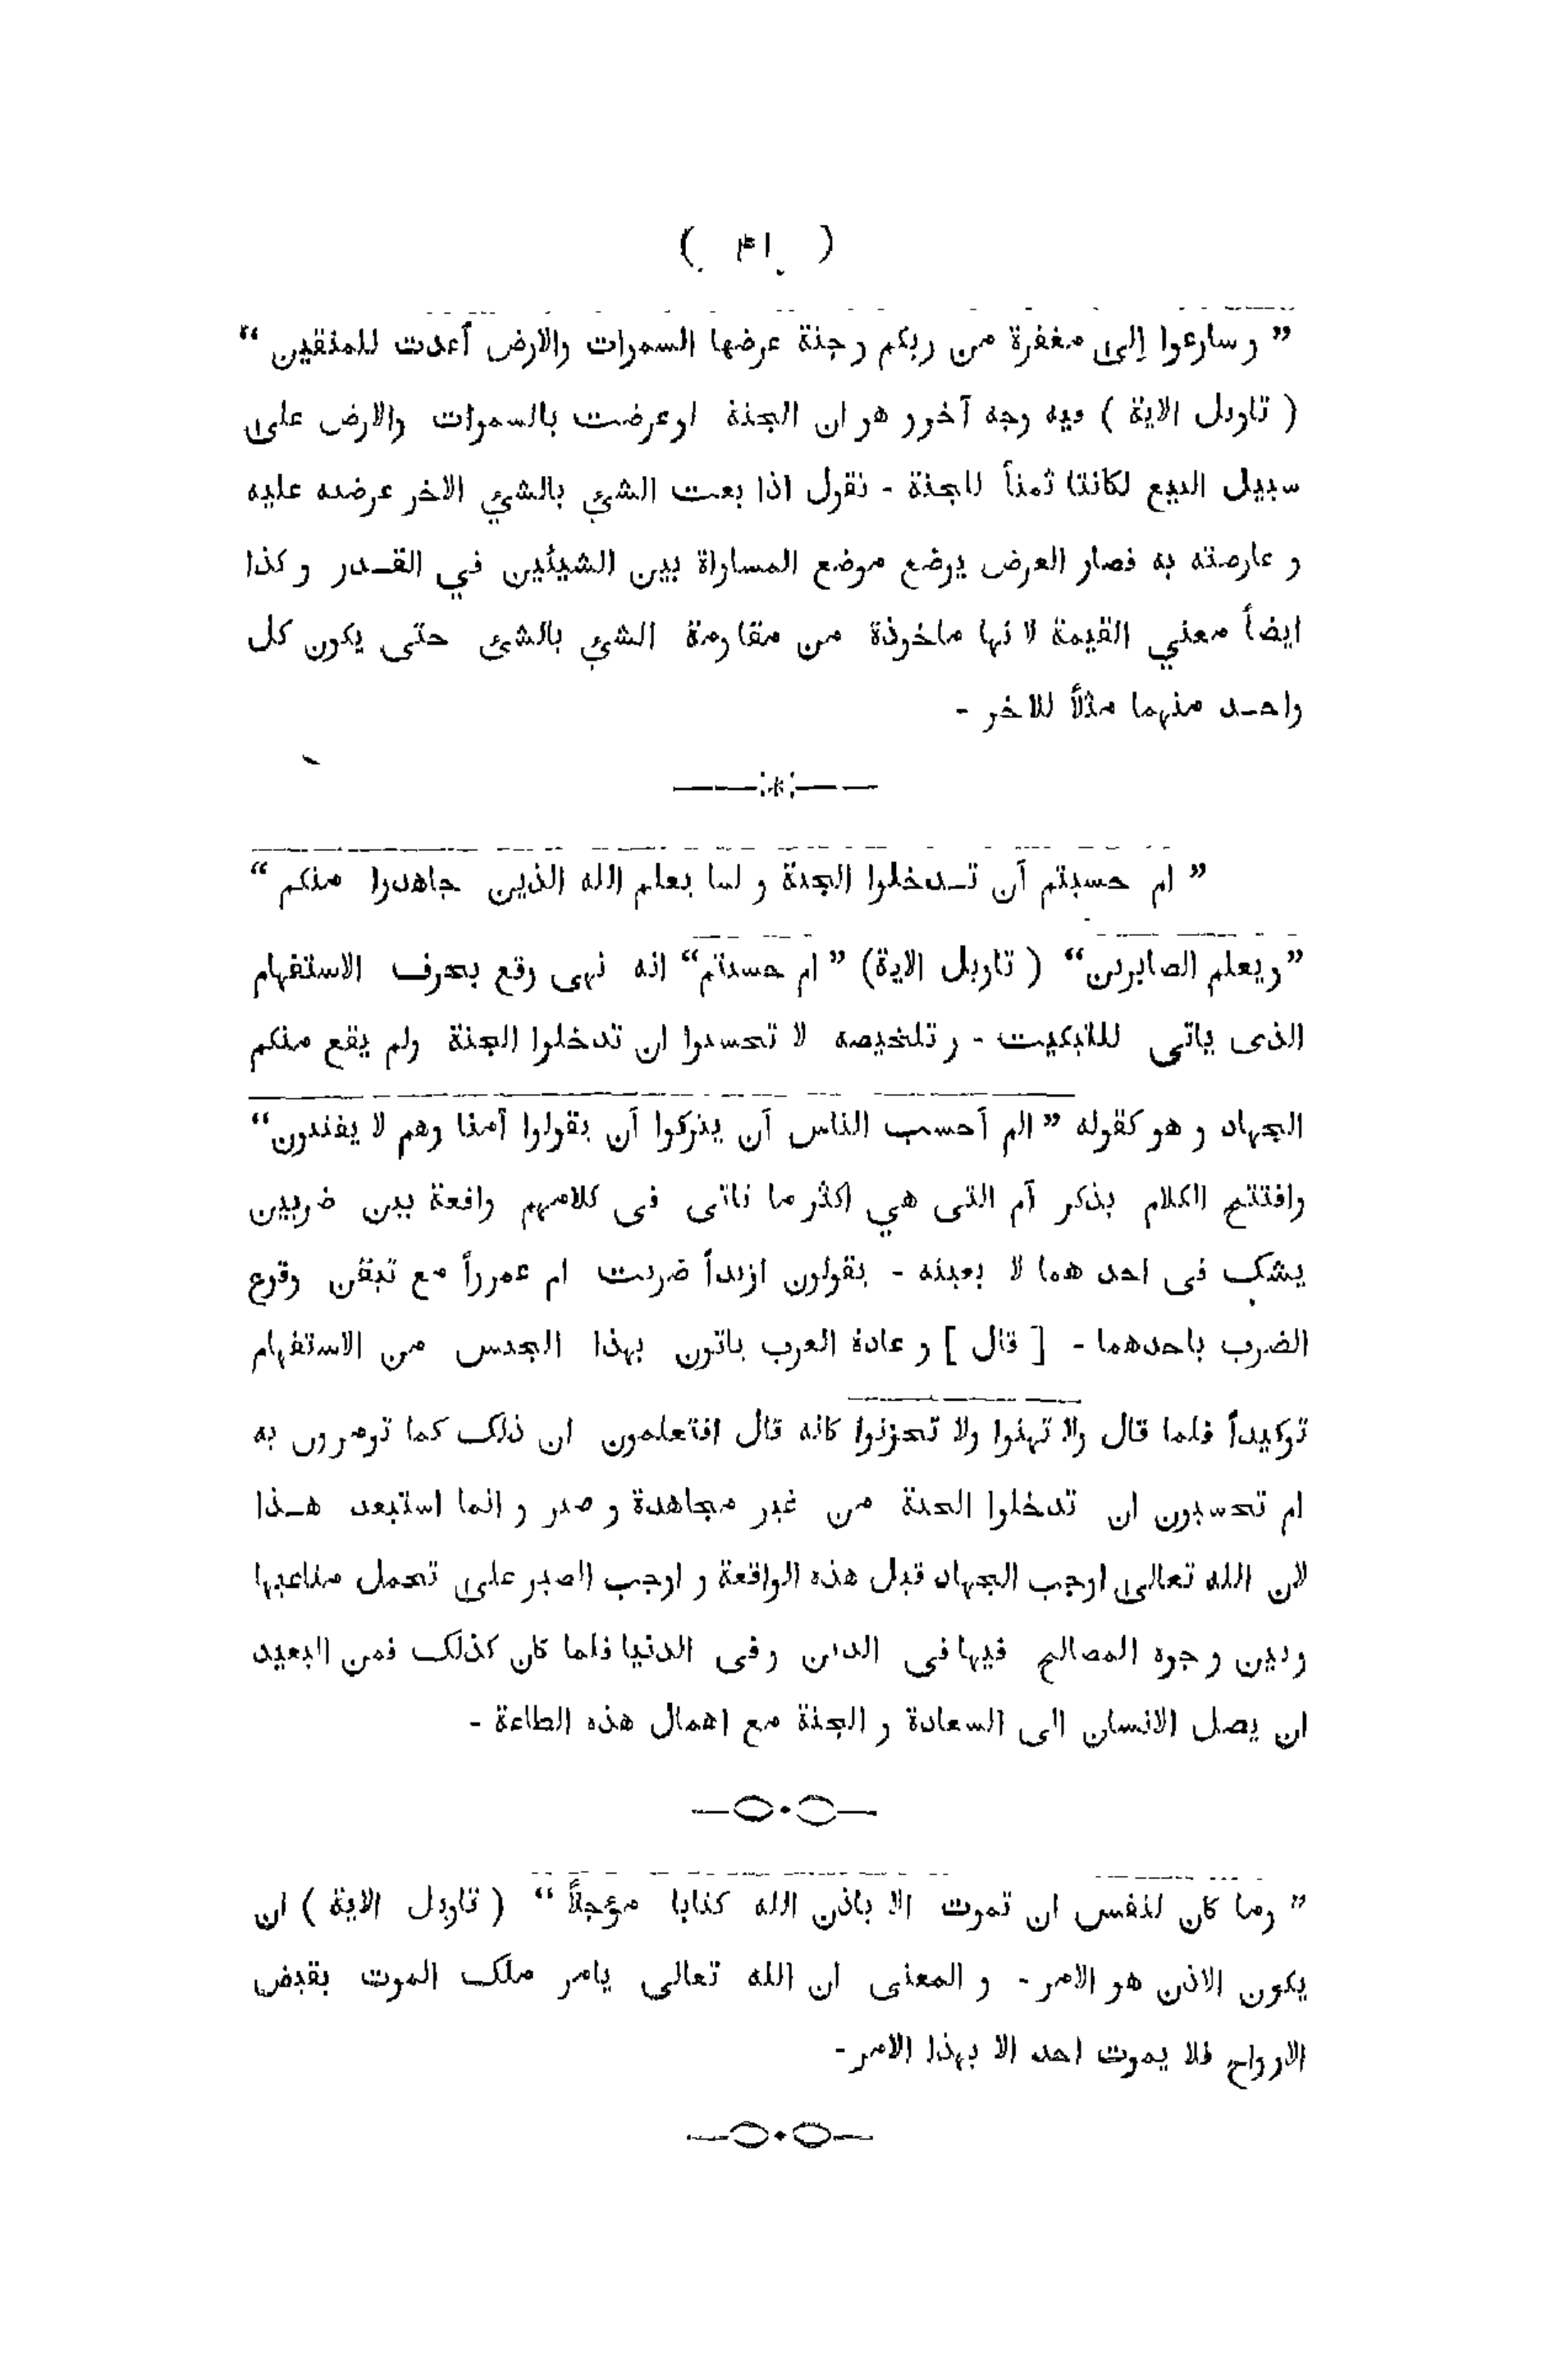 ( ١٤ )
” وسارعوا إلى مغفرة من ربكم وجنة عرضها السموات والارض أعدت للمتقين “
( تاويل الاية ) فيه وجه آخر و هو ان الجنة لو عرضت بالسموات والارض على
سبيل البيع لكانتا ثمناً للجنة - تقول اذا بعت الشئ بالشئ الاخر عرضته عليه
و عارضته به فصار العرض يوضع موضع المساواة بين الشيئين في القـدر و كذا
ايضاً معني القيمة لا نها ماخوذة من مقاومة الشئ بالشئ حتى يكون كل
واحـد منهما مثلاً للاخر -
” ام حسبتم أن تـدخلوا الجنة و لما يعلم الله الذين جاهدوا منكم “
”ويعلم الصابرين“ ( تاويل الاية) ”ام حسبتم“ انه نهى وقع بحرف الاستفهام
الذى ياتى للتبكيت - و تلخيصه لا تحسبوا ان تدخلوا الجنة ولم يقع منكم
الجهاد و هو كقوله ” الم أحسب الناس أن يتركوا أن يقولوا آمنا وهم لا يفتنون“
وافتتح الكلام بذكر أم التى هي اكثر ما تاتى فى كلامهم واقعة بين ضربين
يشك فى احد هما لا بعينه - يقولون ازيداً ضربت ام عمرواً مع تيقن وقوع
الضرب باحدهما - [ قال ] و عادة العرب ياتون بهذا الجنس من الاستفهام
توكيداً فلما قال ولا تهنوا ولا تحزنوا كانه قال افتعلمون ان ذلك كما تومرون به
ام تحسبون ان تدخلوا الجنة من غير مجاهدة و صبر و انما استبعد هـذا
لان الله تعالى اوجب الجهاد قبل هذه الواقعة و اوجب الصبر على تحمل متاعبها
وبين و جوه المصالح فيها فى الدين وفى الدنيا فلما كان كذلك فمن البعيد
ان يصل الانسان الى السعادة و الجنة مع اهمال هذه الطاعة -
” وما كان لنفس ان تموت الا باذن الله كتابا مؤجلاً “ ( تاويل الاية ) ان
يكون الاذن هو الامر - و المعنى ان الله تعالى يامر ملك الموت بقبض
الارواح فلا يموت احد الا بهذا الامر -